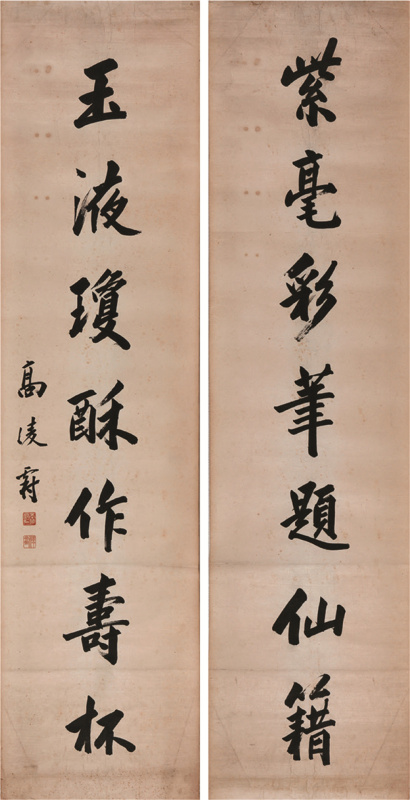 紫毫彩筆題仙籍
玉液瓊酥作壽杯
高凌霨